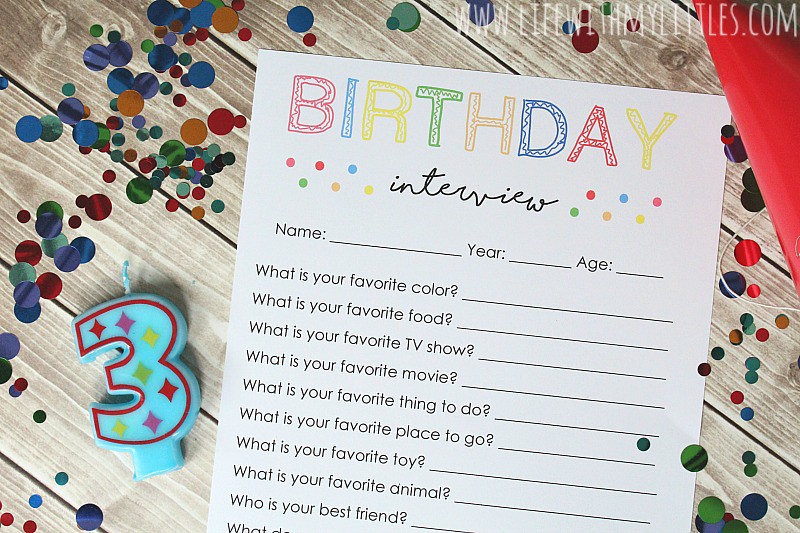 WWW.LIFEWITHMYLITTLES.COM
BIRTHDAY
interview
Name: Year: Age:
What is your favorite color?
What is your favorite food?
What is your favorite TV show?
What is your favorite movie?
What is your favorite thing to do?
What is your favorite place to go?
What is your favorite toy?
What is your favorite animal?
Who is your best friend?
What do
3